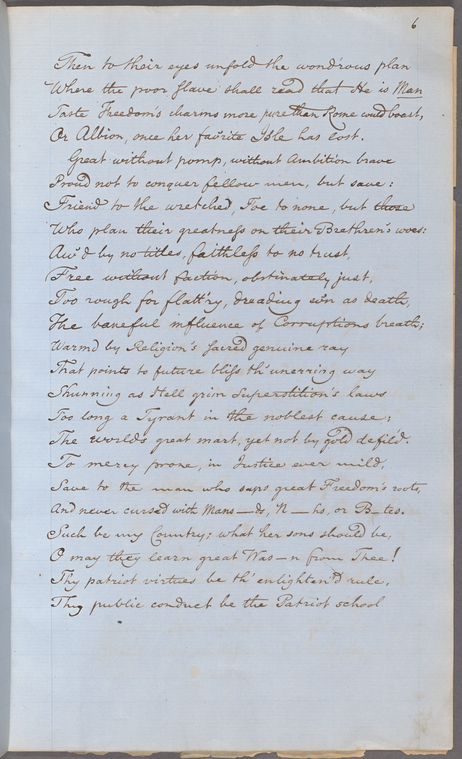 6
Then to their eyes unfold the wond'rous plan
Where the poor slave shall read that He is Man
Taste Freedom's charms more pure than Rome could boast,
Or Albion, once her fav'rite Isle has lost.
Great without pomp, without Ambition brave
Proud not to conquer fellow men, but save:
Friend to the wretched, Foe to none, but those
Who plan their greatness on their Brethren's woes:
Aw'd by no titles, faithless to no trust,
Free without faction, obstinately just,
Too rough for flatt'ry, dreading ev'n as death,
The baneful influence of Corruptions breath;
Warm'd by Religion's sacred genuine ray
That points to future bliss th' unerring way
Shunning as Hell grim Superstition's laws
Too long a Tyrant in the noblest cause;
The world's great mart, yet not by gold defil'd.
To mercy prone, in Justice ever mild,
Save to the man who saps great Freedom's roots,
And never cursed with Mans—ds, N—hs, or B—tes.
Such be my Country; what her sons should be,
O may they learn great Was—n from Thee!
Thy patriot virtues be th' enlighten'd rule,
Thy public conduct be the Patriot school